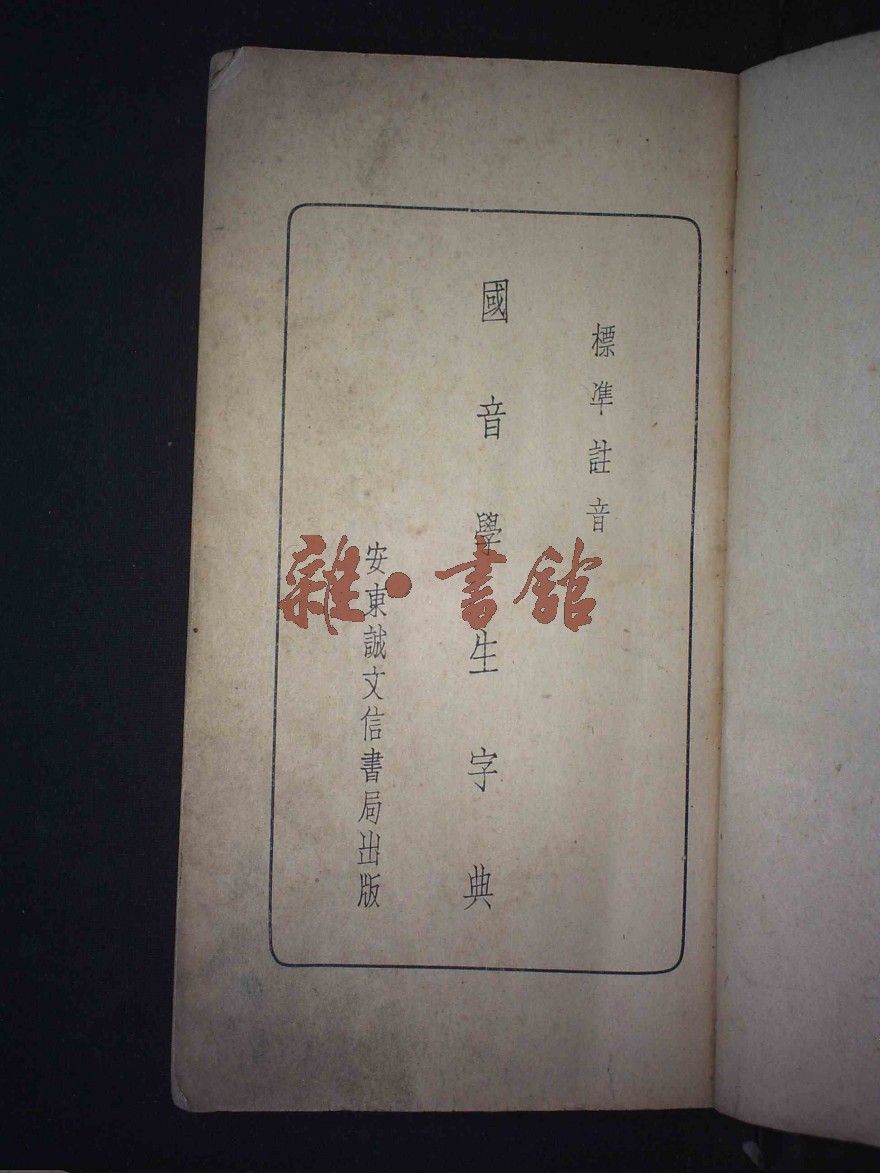 標準註音
國音學生字典
安東誠文信書局出版
雜·書館